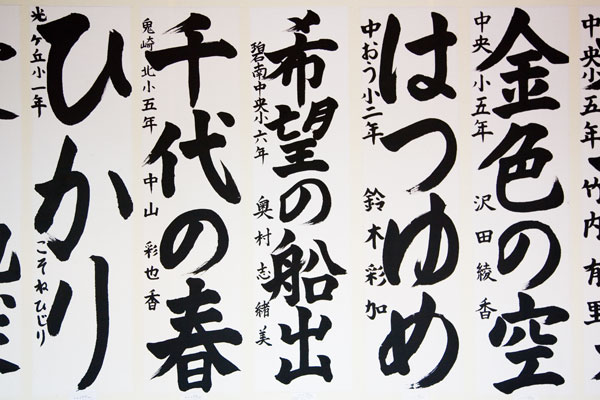 中央小五年 竹内有里
金色の空
中央小五年 沢田綾香
はつゆめ
中おう小二年 鈴木彩加
希望の船出
碧南中央小六年 奥村志緒美
千代の春
鬼崎北小五年 中山彩也香
ひかり
光ヶ丘小一年 こそねひじり